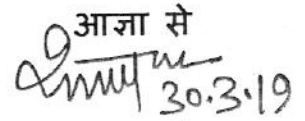 आज्ञा से
30.3.19